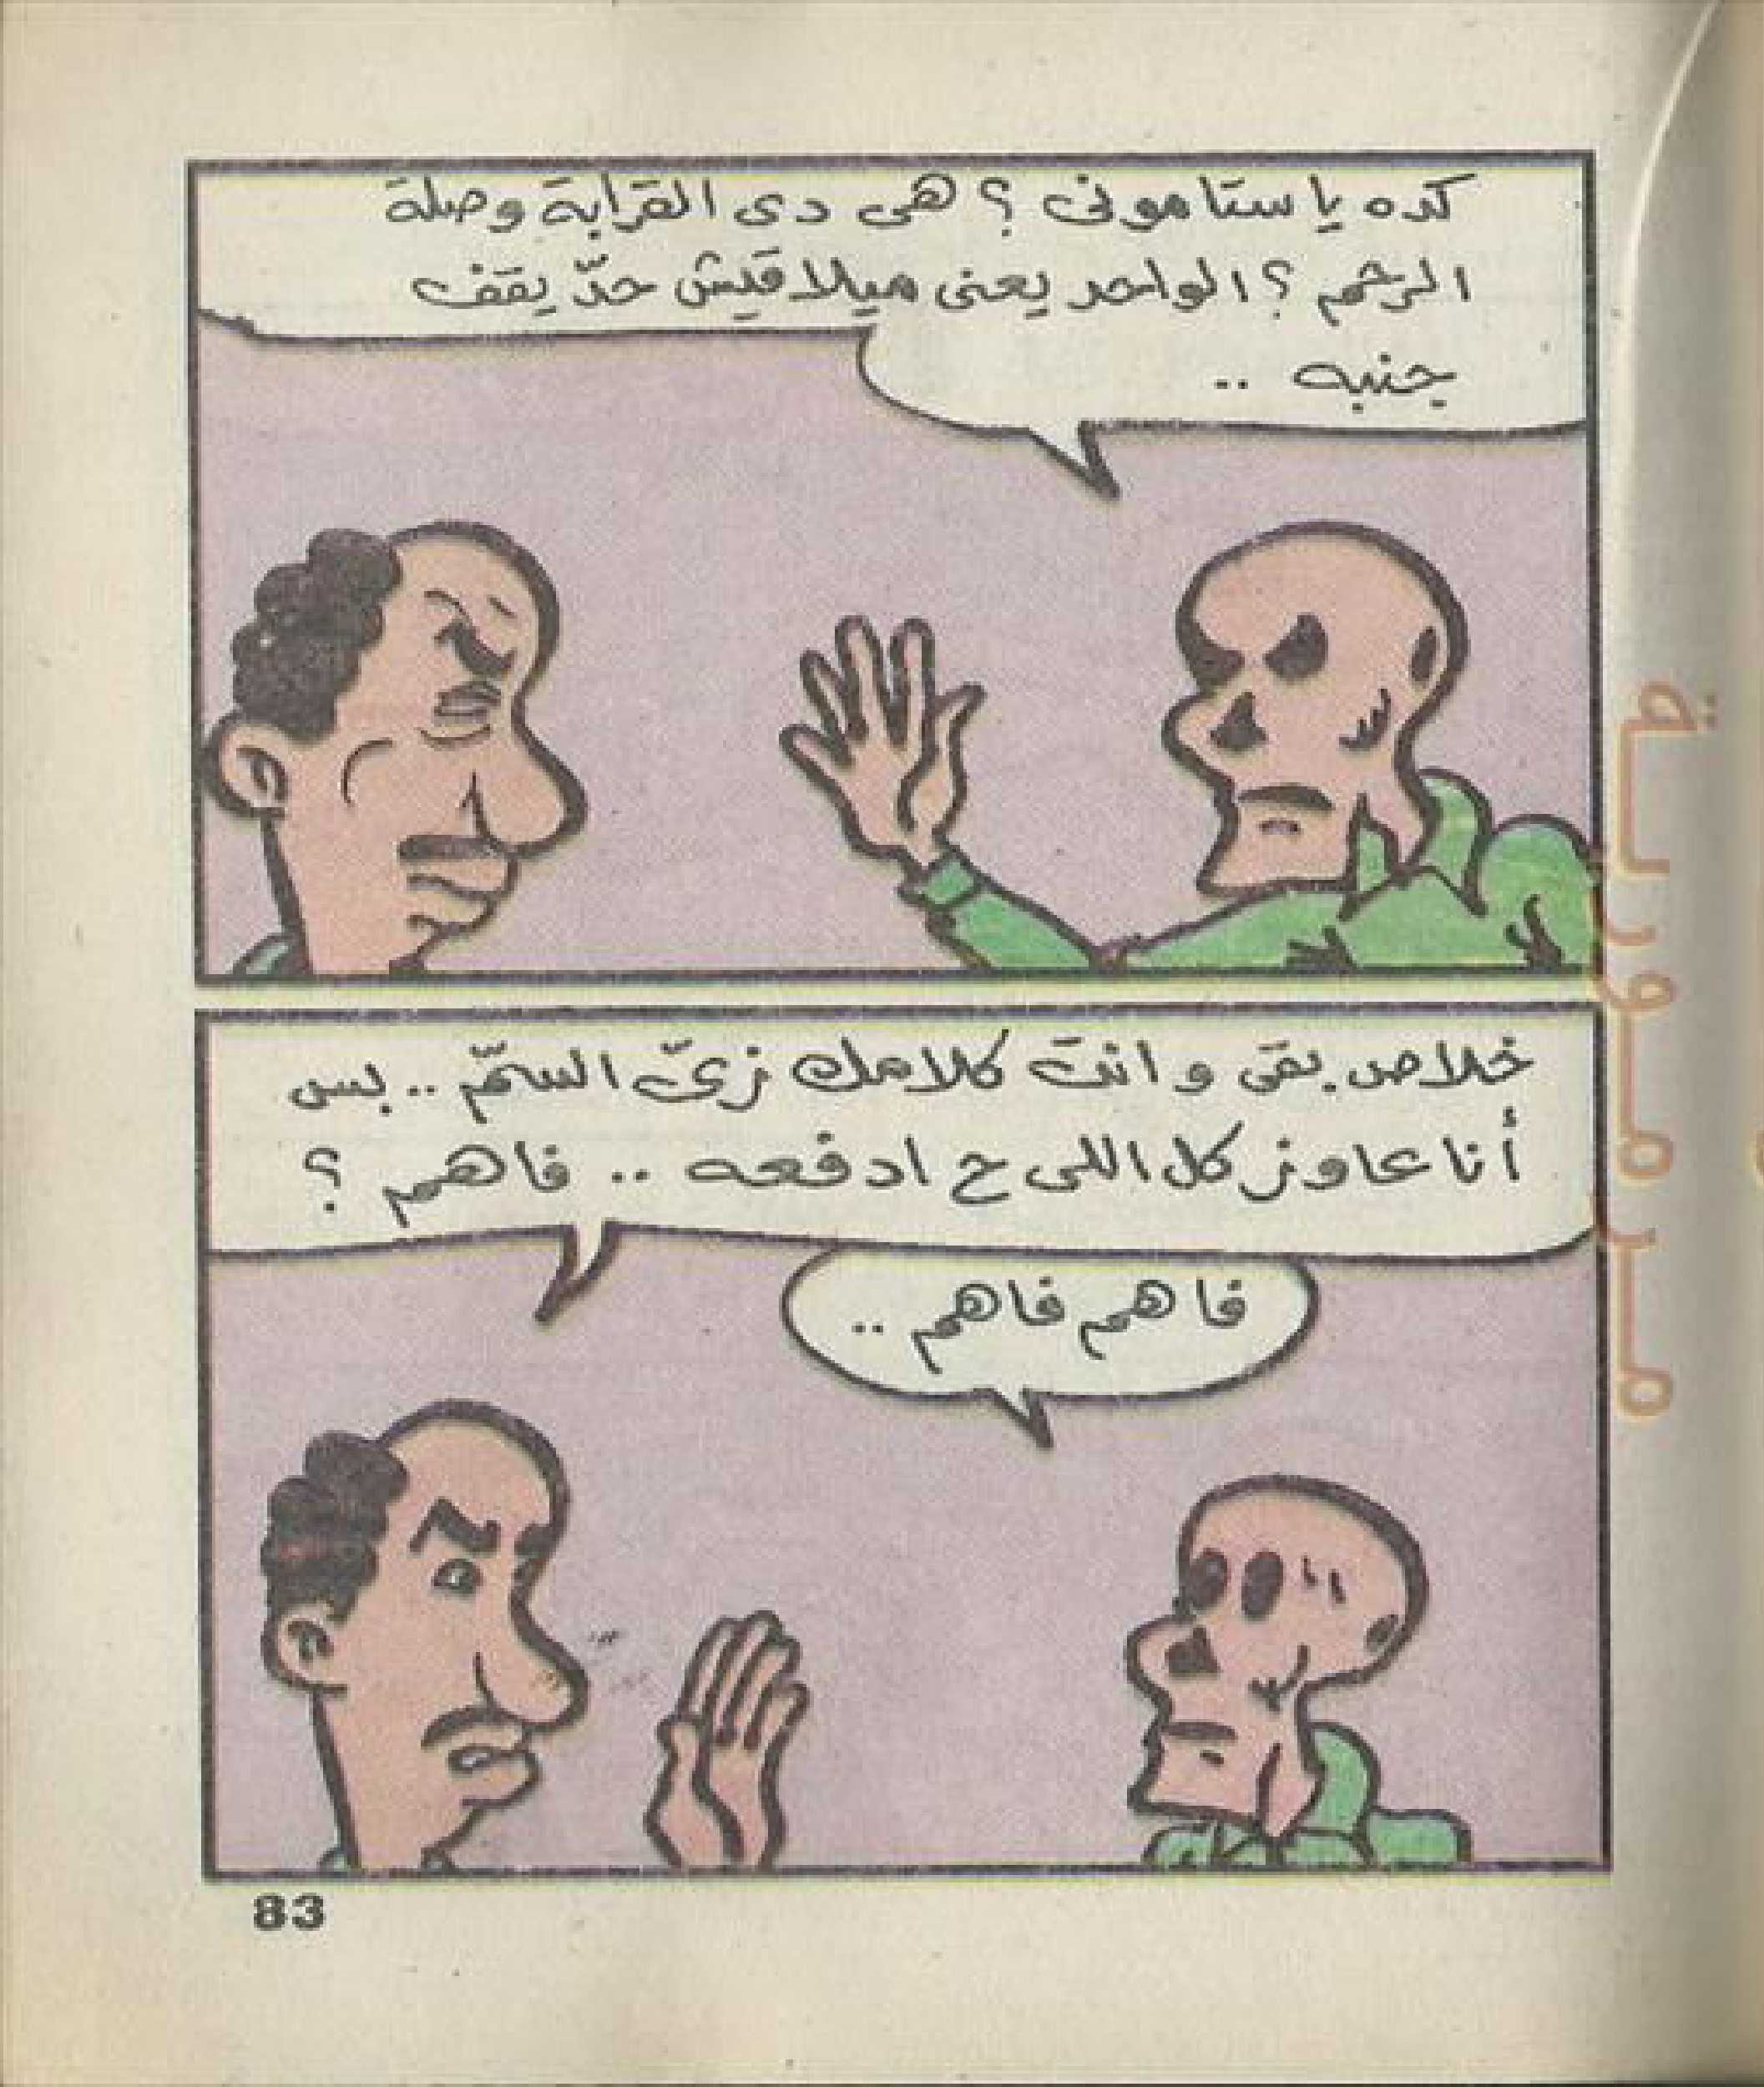 كده يا ستاموني ؟ هي دي القرابة وصلة
الرحم ؟ الواحد يعني ميلاقيش حدّ يقف
جنبه ..
خلاص بقى وانت كلامك زيّ السمّ .. بس
أنا عاوز كل اللي ح ادفعه .. فاهم ؟
فاهم فاهم ..
83